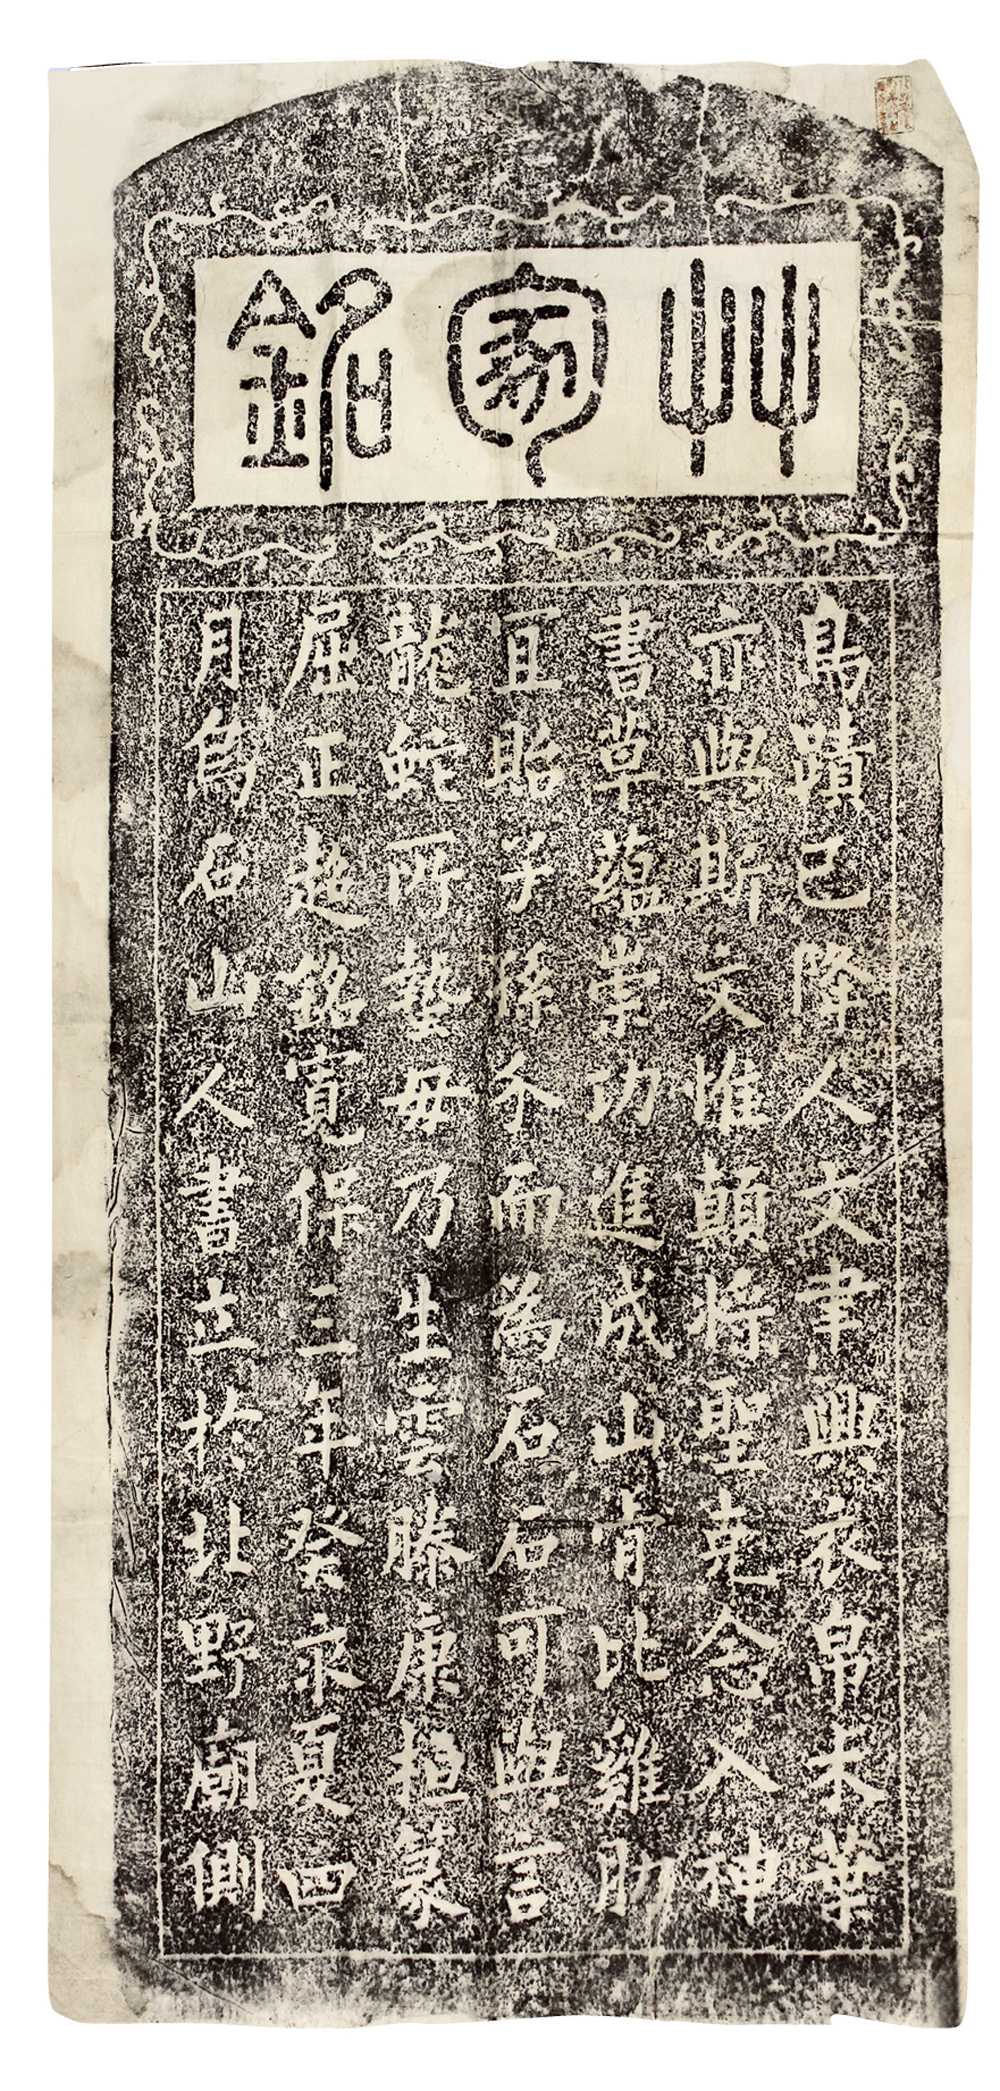 艸冢銘
鳥蹟已降人文聿興衣帛未葬
亦與斯文惟顛將聖克念入神
書草蘊崇功進成山肯比雞肋
宜貽子孫介而為石石可與言
龍蛇所蟄毋乃生雲滕康桓篆
屈正超銘寬保三年癸亥夏四
月烏石山人書立於北野廟側